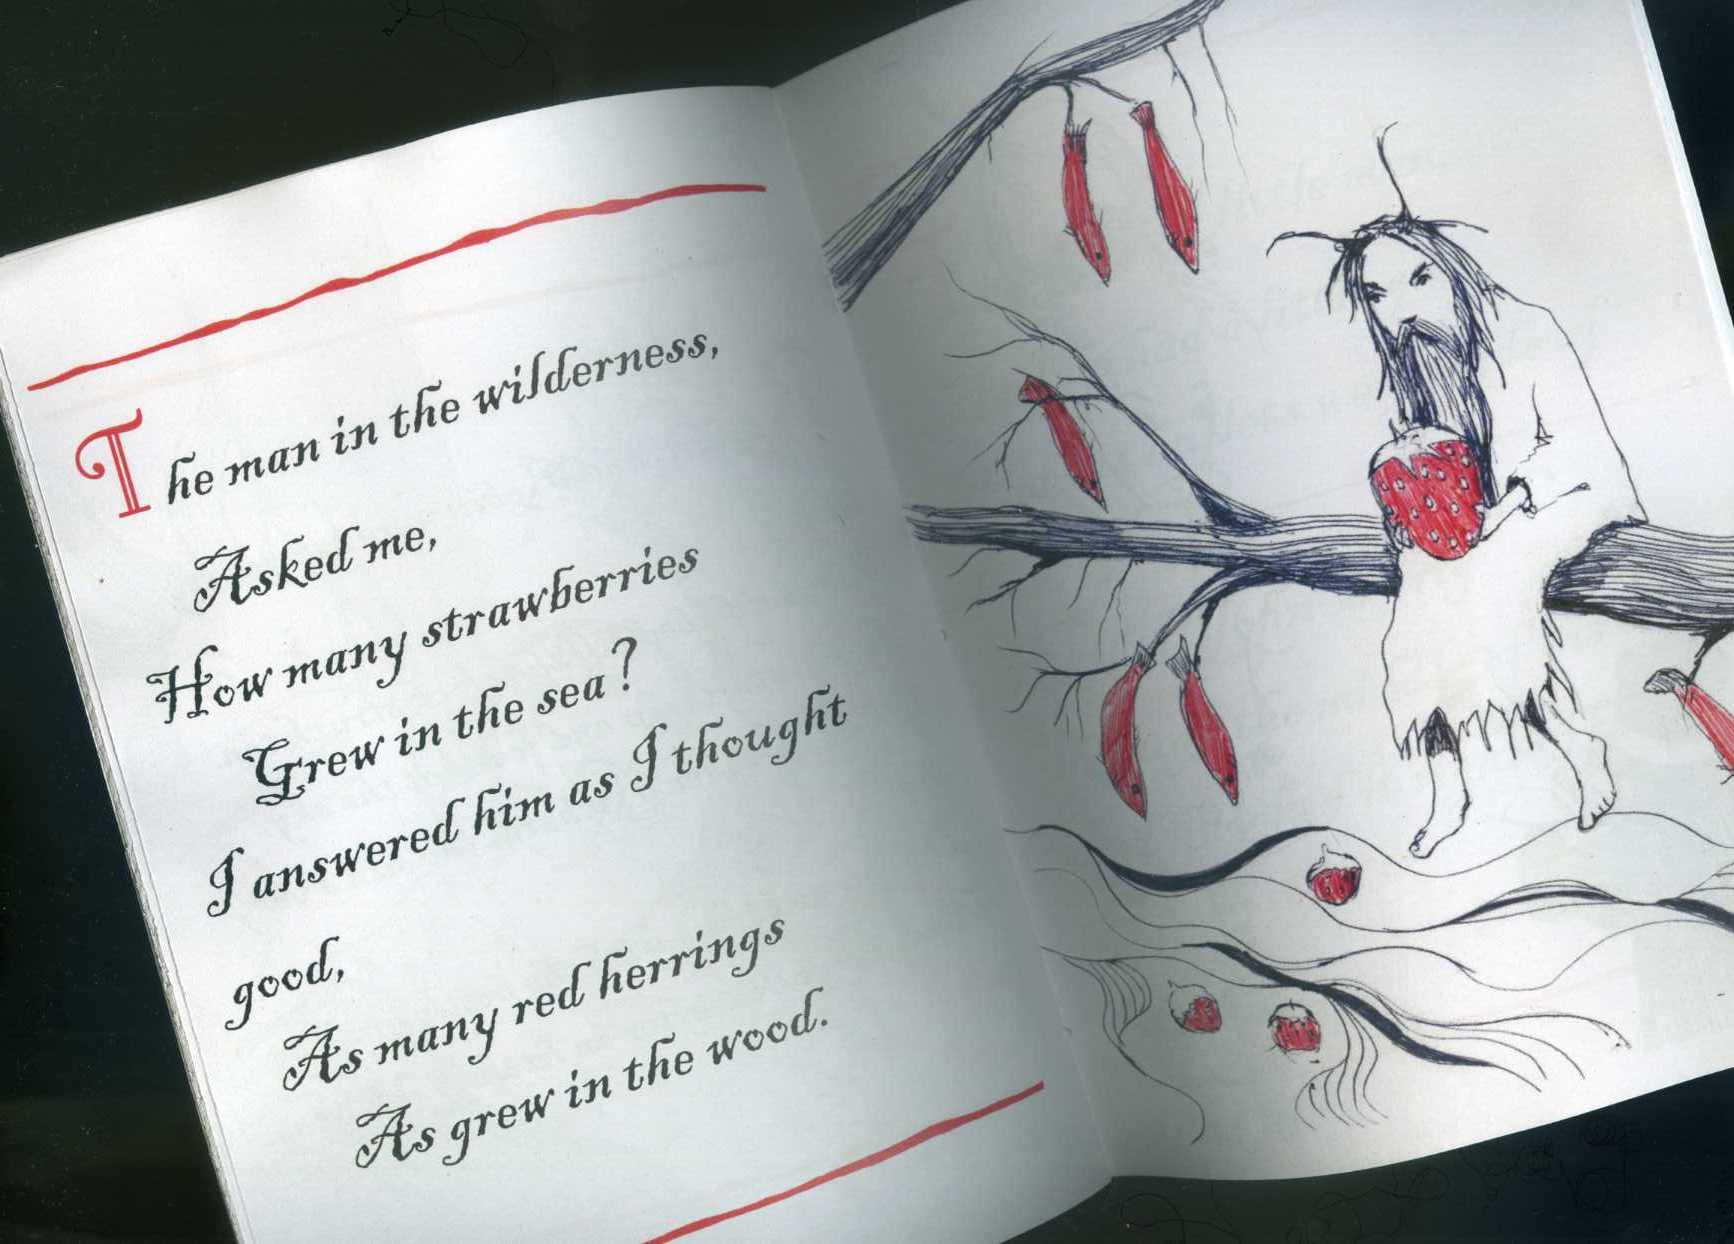 The man in the wilderness,
Asked me,
How many strawberries
Grew in the sea?
I answered him as I thought
good,
As many red herrings
As grew in the wood.